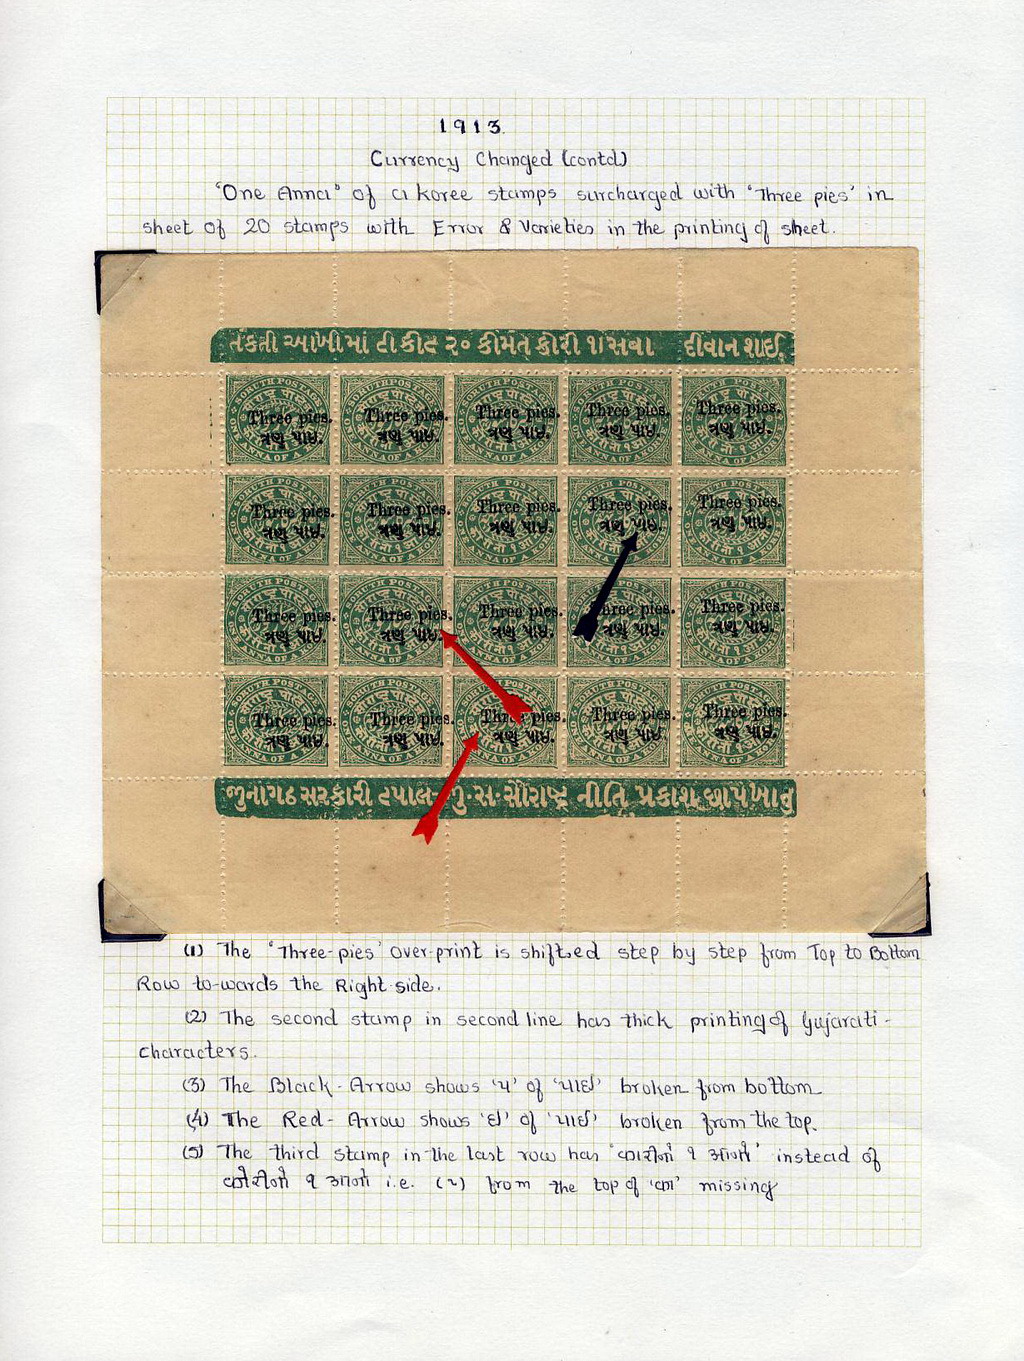 1913.
Currency Changed (contd)
'One Anna' of a koree stamps surcharged with 'Three pies' in
sheet of 20 stamps with Error & Varieties in the printing of sheet.
તકતી આખીમાં ટીકીટ ૨૦ કીમત કોરી ૧। સવા દીવાન શાઈ
SORUTH POSTAGE
ONE ANNA OF A KOREE
Three pies. Three pies. Three pies. Three pies. Three pies.
ત્રણ પાઈ. ત્રણ પાઈ. ત્રણ પાઈ. ત્રણ પાઈ. ત્રણ પાઈ.
Three pies. Three pies. Three pies. Three pies. Three pies.
ત્રણ પાઈ. ત્રણ પાઈ. ત્રણ પાઈ. ત્રણ પાઈ. ત્રણ પાઈ.
Three pies. Three pies. Three pies. Three pies. Three pies.
ત્રણ પાઈ. ત્રણ પાઈ. ત્રણ પાઈ. ત્રણ પાઈ. ત્રણ પાઈ.
Three pies. Three pies. Three pies. Three pies. Three pies.
ત્રણ પાઈ. ત્રણ પાઈ. ત્રણ પાઈ. ત્રણ પાઈ. ત્રણ પાઈ.
જુનાગઢ સરકારી ટપાલ-જુ. સ. સૌરાષ્ટ્ર નીતિ પ્રકાશ છાપખાનુ
(1) The 'Three-pies' over-print is shifted step by step from Top to Bottom
Row to-wards the Right side.
(2) The second stamp in second line has thick printing of Gujarati-
characters.
(3) The Black-Arrow shows 'પ' of 'પાઈ' broken from bottom
(4) The Red-Arrow shows 'ઈ' of 'પાઈ' broken from the top.
(5) The third stamp in the last row has "कारीनो १ आनो" instead of
कोरीनो १ आनो i.e. (ે) from the top of 'का' missing